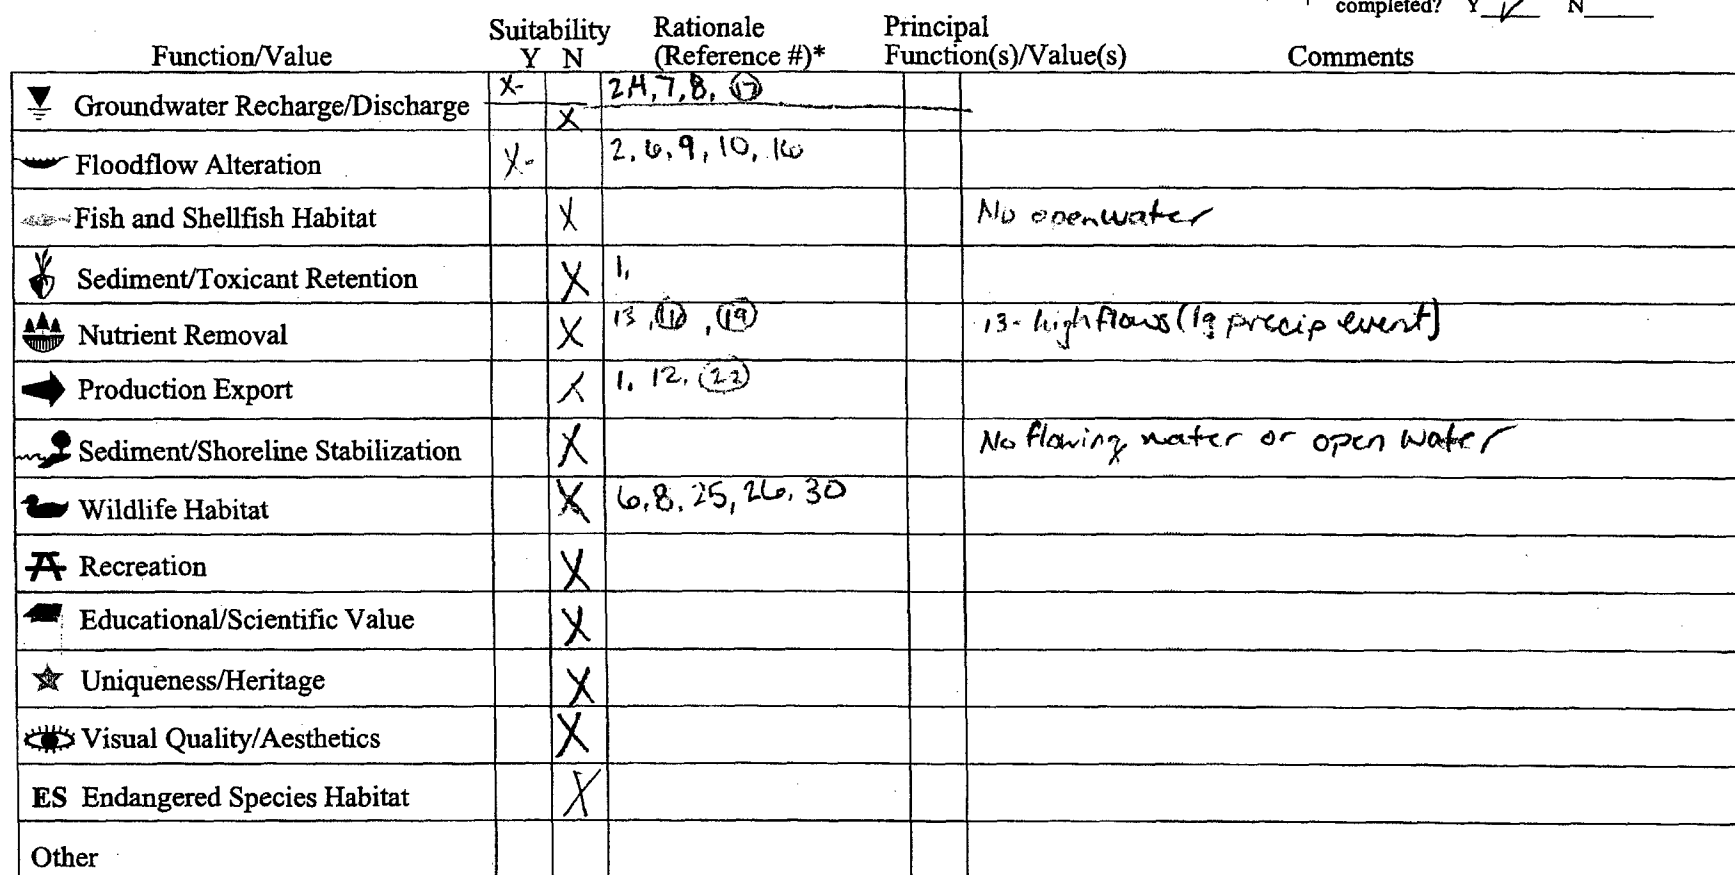 completed? Y ✓ N
Suitability Rationale Principal
Function/Value Y N (Reference #)* Function(s)/Value(s) Comments
Groundwater Recharge/Discharge X- 2,4,7,8, (17)
X
Floodflow Alteration X- 2, 6, 9, 10, 16
Fish and Shellfish Habitat X No open water
Sediment/Toxicant Retention X 1,
Nutrient Removal X 13, , (19) 13- high flows (lg precip event)
Production Export X 1, 12, (22)
Sediment/Shoreline Stabilization X No flowing water or open water
Wildlife Habitat X 6,8,25,26,30
Recreation X
Educational/Scientific Value X
Uniqueness/Heritage X
Visual Quality/Aesthetics X
ES Endangered Species Habitat X
Other